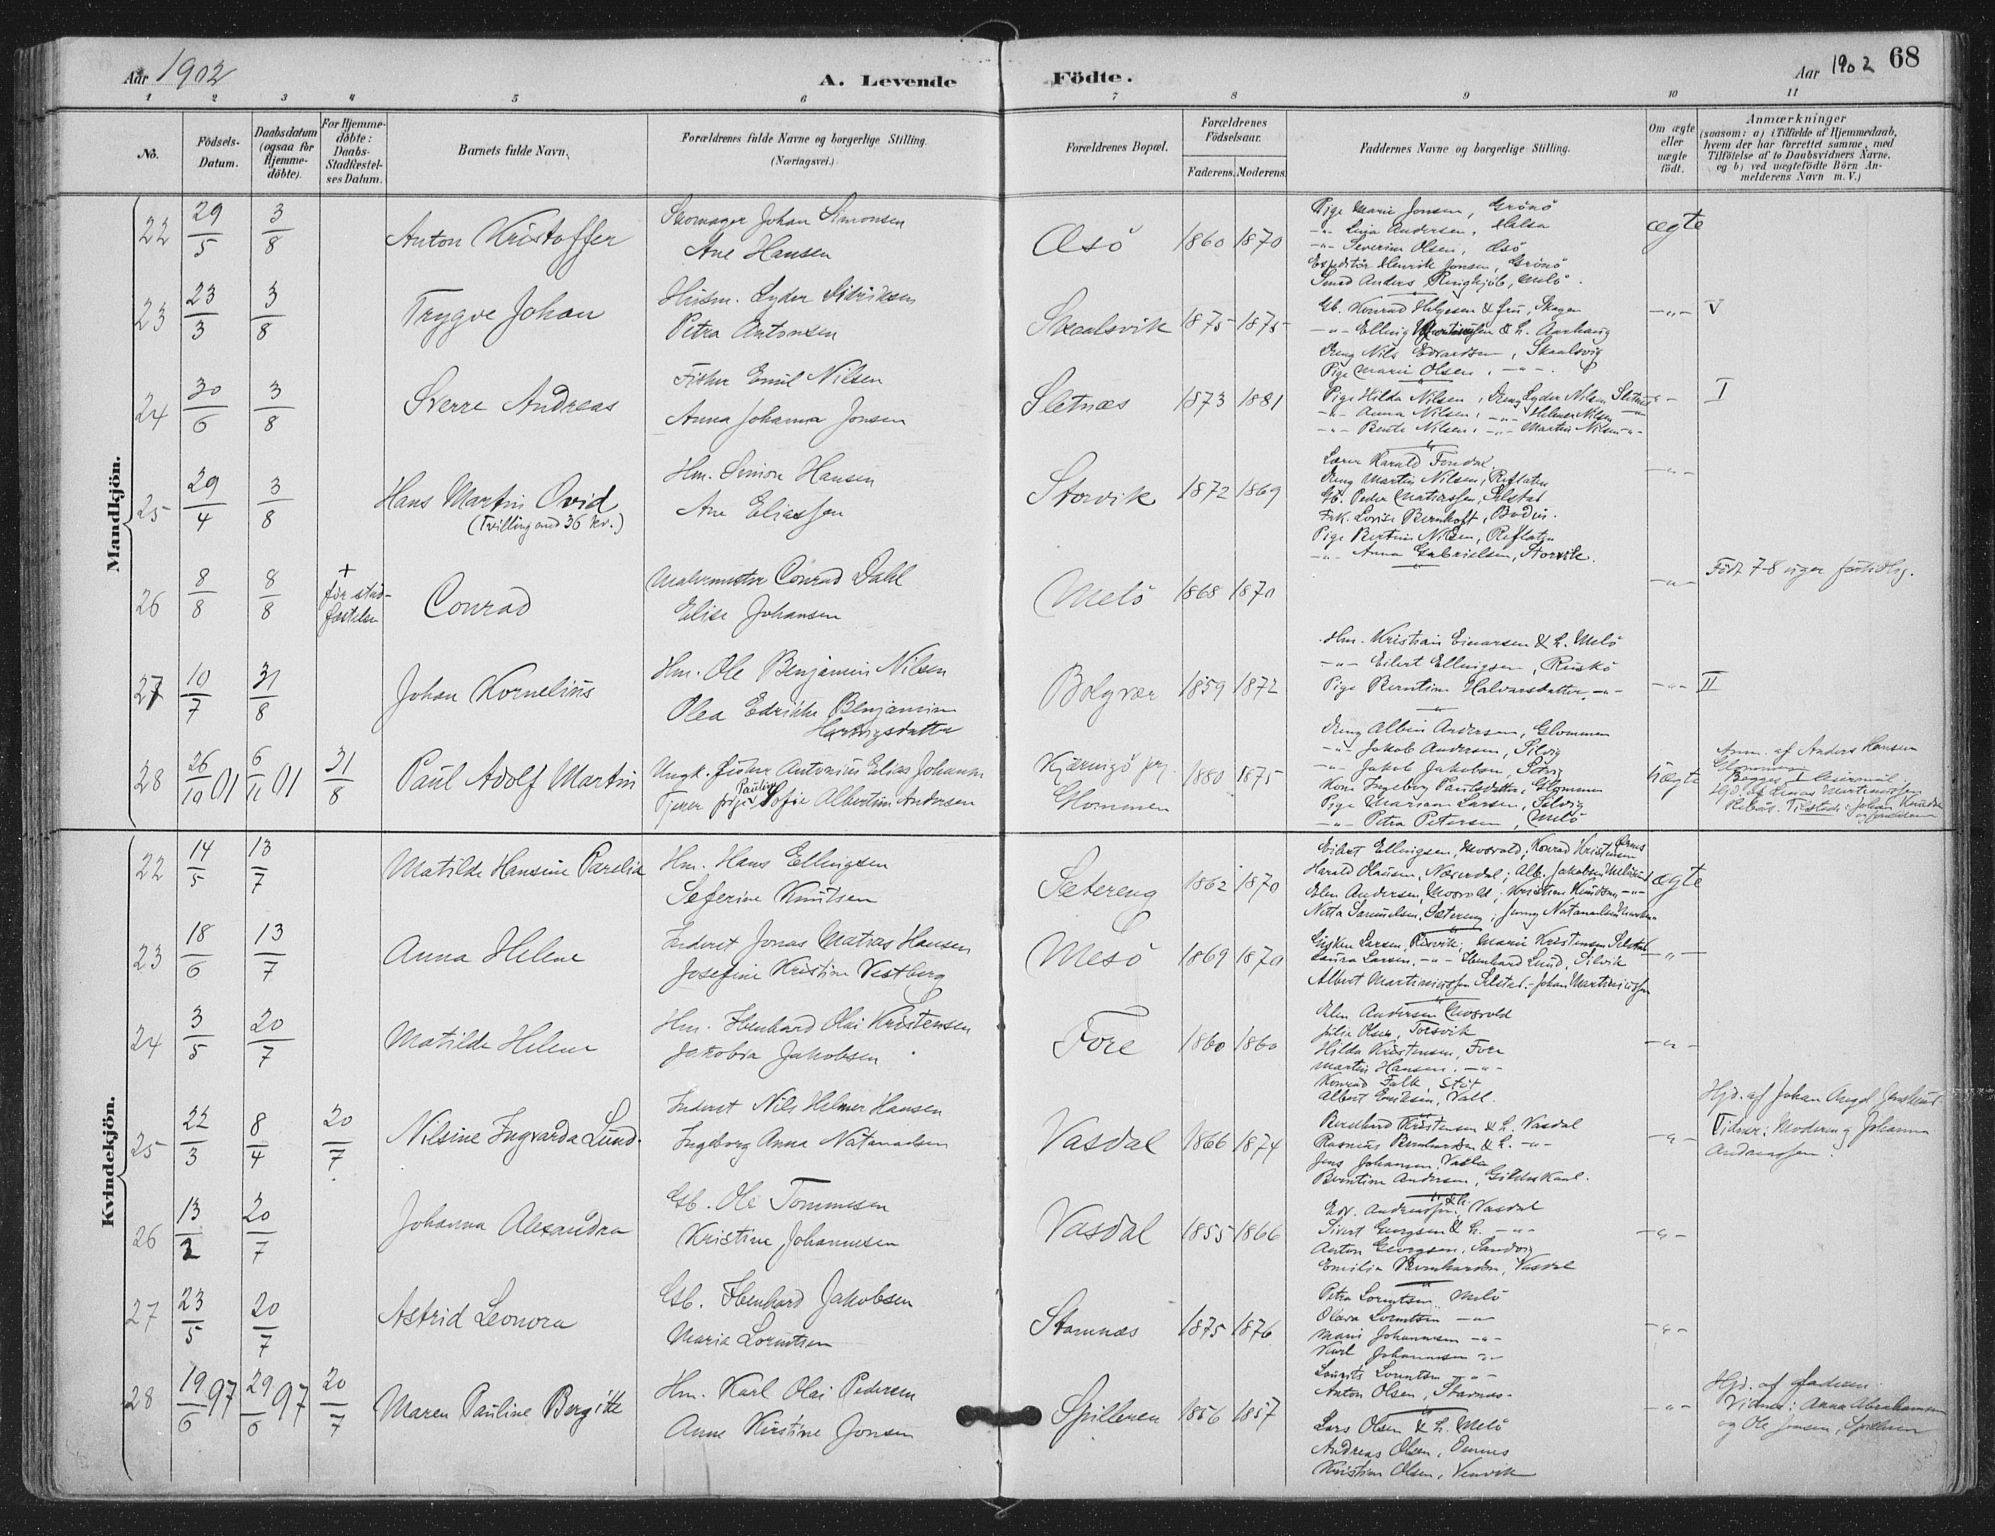 Aar 1902
A. Levende
Födte.
Aar 1902
68
1 2 3 4 5 6 7 8 9 10 11
No.
Födsels-
Datum.
Daabsdatum
(ogsaa for
Hjemme-
döbte).
For Hjemme-
döbte:
Daabs-
Stadfæstel-
ses Datum.
Barnets fulde Navn.
Forældrenes fulde Navne og borgerlige Stilling.
(Næringsvei.)
Forældrenes Bopæl.
Forældrenes
Födselsaar.
Faderens. Moderens.
Faddernes Navne og borgerlige Stilling.
Om ægte
eller
uægte
födt.
Anmærkninger
(saasom: a) i Tilfælde af Hjemmedaab,
hvem der har forrettet samme, med
Tilföielse af to Daabsvidners Navne,
og b) ved uægtefödte Börn An-
melderens Navn m. V.)
Mandkjön.
22 29/5 3/8 Anton Kristoffer
Skomager Johan Simonsen
Ane Hansen
Æsö 1860 1870
Pige Marie Jonsen, Grönö
-"- Andersen,
-"- Severine Olsen, Æsö
Expeditör Henrik Jonsen, Grönö
Smed Anders Ringkjöb, Melö.
ægte
23 23/3 3/8 Trygve Johan
Husm. Lyder Didriksen
Petra Antonsen
Skaalsvik 1875 1875
Gb. Konrad Helgesen & fru, Skagen
-"- Elling & h. Aarhaug
Dreng Nils Edvardsen, Skaalsvig
Pige Marie Olsen, -"-
-"- V
24 30/6 3/8 Sverre Andreas
Fisker Emil Nilsen
Anna Johanna Jonsen
Sletnæs 1873 1881
Pige Hilda Nilsen, Dreng Lyder Nilsen Sletnæs
-"- Anna Nilsen, -"- Helmer Nilsen -"-
-"- Bente Nilsen, -"- Martin Nilsen -"-
-"- I
25 29/4 3/8 Hans Martin Ovid
(Tvilling med 36 kv.)
Hm. Simon Hansen
Ane Eliassen
Storvik 1872 1869
Lærer Harald Fondal.
Dreng Martin Nilsen, Reflaten
Gb. Peder Matiassen, Selstad
Frk. Lovise Bernhoft, Bodin.
Pige Bertine Nilsen, Reflaten
-"- Anna Gabrielsen, Storvik.
-"-
26 8/8 8/8 + før stad-
fæstelsen
Conrad
Malermester Conrad Dahl
Elise Johansen
Melö 1868 1870
-"-
Födt 7-8 uger förtidlig.
27 10/7 31/8 Johan Kornelius
Hm. Ole Benjamin Nilsen
Olea Edrikke Benjamine
Hartvigsdatter
Bolgvær 1859 1872
Hm. Kristian Einarsen & h. Melö
-"- Eilert Ellingsen, Ruskö
Pige Berntine Halvarsdatter -"-
-"- II
28 26/10 01 6/11 01 31/8 Paul Adolf Martin
Ungk. fisker Antonius Elias Johansen
Tjener pige Pauline Sofie Albertine Andersen
Kjærringö prg.
Glommen
1880 1875
Dreng Albin Andersen, Glommen
-"- Jakob Andersen, Silvig
-"- Jakob Jakobsen, Selvig
Kone Ingeborg Paulsdatter, Glommen
Pige Mariane Larsen, Silvig
-"- Petra Petersen, Melö
Uægte
Anm. af Anders Hansen
Glommen
Kvindekjön.
22 14/5 13/7 Matilde Hansine Parelia
Hm. Hans Ellingsen
Seferine Knutsen
Sætereng 1862 1870
Eilert Ellingsen, Mosvold; Konrad Kristensen Ørnes
Harald Olausen, Næverdal; Alb. Jakobsen
Elen Andersen, Mosvold; Kristian Knudsen, -"-
Nitta Samuelsen, Sætereng; Jenny Natanaelsen
ægte
23 18/6 13/7 Anna Helene
Inderst Jonas Matias Hansen
Josefine Kristine Vestberg
Mesö 1869 1870
Gisken Larsen, Risvik; Marie Kristensen Selstad
Laura Larsen, -"- Ebenhard Lund, Silvik
Albert Martinussen Selstad. Johan Martinussen
-"-
24 3/5 20/7 Matilde Helene
Hm. Ebenhard Olai Kristensen
Jakobia Jakobsen
Fore 1860 1860
Elen Andersen Mosvold
Julie Olsen, Torsvik
Hilda Kristensen, Fore
Martin Hansen, -"-
Konrad Falk, Stöt
Albert Eriksen, Vall.
-"-
25 22/3 8/4 20/7 Nilsine Ingvarda Lund.
Inderst Nils Helmer Hansen
Ingeborg Anna Natanaelsen
Vasdal 1866 1874
Bernhard Kristensen & h. Vasdal
Rasmus Bernhardsen & h. -"-
Jens Johansen,
Berntine Andersen, Gildeskaal.
-"-
Hjd. af Johan Angel
Vidner: Moderen og Johanna
Andreassen.
26 13/2 20/7 Johanna Alexandra
Gb. Ole Tommesen
Kristine Johannesen
Vasdal 1855 1866
Edv. Andreassen & h. Vasdal
Sivert Georgsen & h. -"-
Anton Georgsen, Sandvig
Emilie Bernhardsen, Vasdal
-"-
27 23/5 20/7 Astrid Leonora
Gb. Ebenhard Jakobsen
Maria Lorentsen
Stamnæs 1875 1876
Petra Lorentsen, Melö
Olava Lorentsen -"-
Marie Johannesen -"-
Karl Johannesen -"-
Laurits Lorentsen -"-
Anton Olsen, Stamnæs.
-"-
28 19/6 97 29/6 97 20/7 Maren Pauline Bergitte
Hm. Karl Olai Pedersen
Anne Kirstine Jonsen
Spilderen 1856 1857
Lars Olsen & h. Melö
Andreas Olsen,
Kristian Olsen, Venvik
-"-
Hjd. af faderen.
Vidner: Anna Abrahamsen
og Ole Jensen, Spilderen